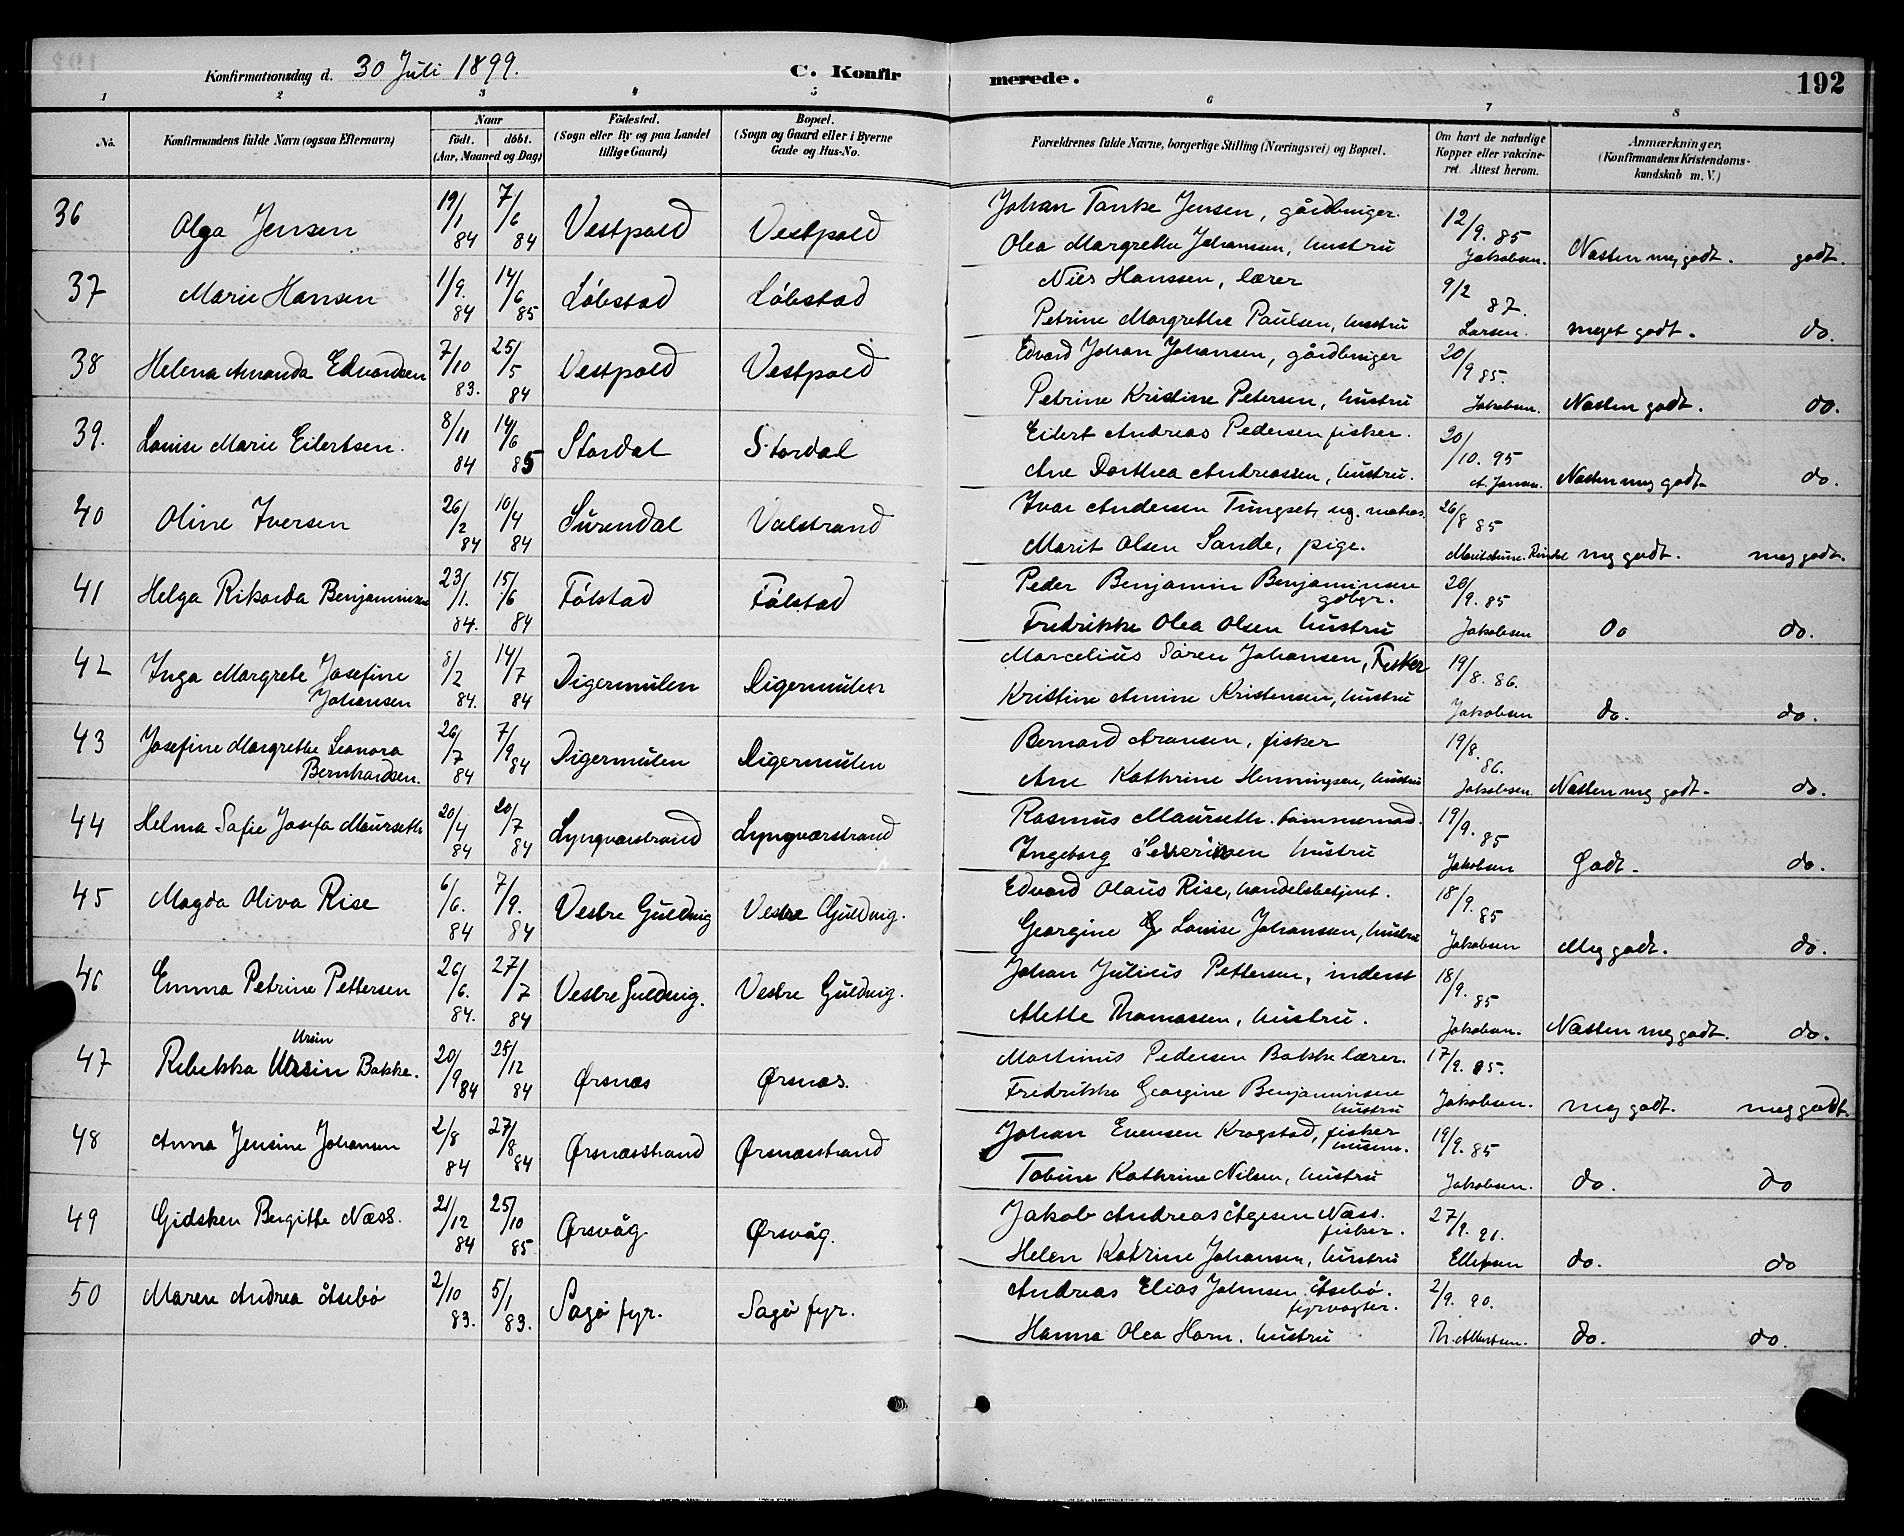 Konfirmationsdag d. 30 Juli 1899. C. Konfirmerede. 192
1 2 3 4 5 6 7 8
No. Konfirmandens fulde Navn (ogsaa Efternavn) Naar födt. döbt. (Aar, Maaned og Dag) Födested. (Sogn eller By og paa Landet tillige Gaard) Bopæl. (Sogn og Gaard eller i Byerne Gade og Hus-No. Forældrenes fulde Navne, borgerlige Stilling (Næringsvei) og Bopæl. Om havt de naturlige Kopper eller vakcineret. Attest herom. Anmærkninger. (Konfirmandens Kristendomskundskab m. V.)
36 Olga Jensen 19/1 84 7/6 84 Vestpold Vestpold Johan Tanke Jensen, gårdbruger. 12/9. 85
Olea Margrethe Johansen, hustru Jakobsen. Næsten meg godt. godt.
37 Marie Hansen 1/9. 84 14/6 85 Löbstad Löbstad Nils Hanssen, lærer 9/2 87.
Petrine Margrethe Paulsen, hustru Larsen. meget godt. do.
38 Helena Amanda Edvardsen 7/10 83. 25/5 84 Vestpold Vestpold Edvard Johan Johansen, gårdbruger 20/9 85.
Petrine Kristine Petersen, hustru Jakobsen. Næsten godt. do.
39. Louise Marie Eilertsen. 8/11 84 14/6 85 Stordal Stordal Eilert Andreas Pedersen fisker. 20/10. 95
Ane Dorthea Andreassen, hustru. A. Jensen. Næsten meg godt. do.
40 Oline Iversen 26/2 84 10/4 84 Surendal Valstrand Ivar Andersen Tungset, ug. matros. 26/8 85
Marit Olsen Sande, pige. Rindal meg godt. meg godt.
41 Helga Rikarda Benjaminsen 23/1. 84. 15/6 84 Fölstad Fölstad Peder Benjamin Benjaminsen gdbgr. 20/9. 85
Fredrikke Olea Olsen hustru Jakobsen Do do.
42 Inga Margrete Josefine Johansen 8/2 84. 14/7 84 Digermulen Digermulen Marcelius Sören Johansen, Fisker 19/8. 86.
Kristine Amine Kristensen, hustru Jakobsen do. do.
43 Josefine Margrethe Leonora Bernhardsen. 26/7 84 7/9 84 Digermulen Digermulen Bernard Aronsen, fisker 19/8. 86.
Ane Kathrine Henningsen, hustru Jakobsen. Næsten meg godt. do.
44 Helma Sofie Josefa Maurseth 20/4 84 20/7 84 Lyngværstrand Lyngværstrand Rasmus Maurseth. tømmermd. 19/9. 85
Ingeborg Severinsen hustru Jakobsen Godt. do.
45 Magda Oliva Rise 6/6. 84 7/9. 84 Vestre Guldvig Vestre Guldvig. Edvard Olaus Rise, handelsbetjent. 18/9. 85
Georgine G Louise Johansen, hustru Jakobsen Meg godt. do.
46 Emma Petrine Pettersen 26/6. 84. 27/7 84 Vestre Guldvig. Vestre Guldvig. Johan Julius Pettersen, inderst 18/9. 85
Alette Thomassen, hustru. Jakobsen. Næsten meg godt. do.
Ursin
47 Rebekka Ursin Bakke. 20/9 84 28/12 84 Ørsnæs Ørsnæs. Martinus Pedersen Bakke lærer. 17/9. 85.
Fredrikke Georgine Benjaminsen hustru Jakobsen. meg godt. meg godt.
48 Anna Jensine Johansen 2/8 84 27/8 84 Ørsnæsstrand Ørsnæstrand Johan Evensen Krogstad, fisker husm. 19/9. 85
Tobine Kathrine Nilsen, hustru Jakobsen. do. do
49 Gidsken Bergitte Næss. 21/12 84 25/10 85 Ørsvåg Ørsvåg. Jakob Andreas Ågesen Næss. fisker. 27/9. 91.
Helen Katrine Johansen, hustru Ellefsen do. do
50 Maren Andrea Åsebö 2/10 83. 5/1 83. Sagö fyr. Sagö fyr. Andreas Elias Johnsen Åsebö. fyrvogter. 2/9. 90.
Hanna Olea Horn. hustru Th. Albertsen. do. do.